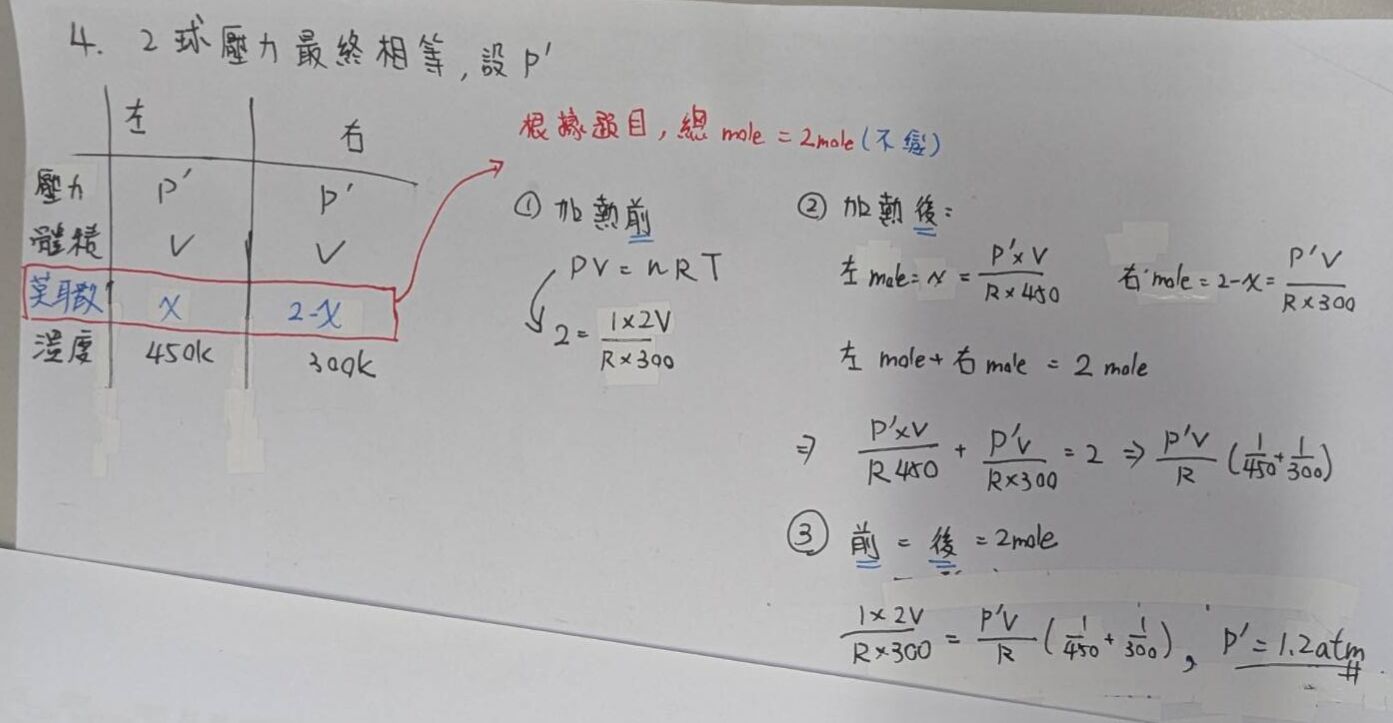 4. 2球壓力最終相等, 設 P'
左 右
壓力 P' P'
體積 V V
莫耳數 x 2-x
溫度 450k 300k
根據題目, 總 mole = 2mole (不變)
① 加熱前
PV = nRT
2 = 1×2V / R×300
② 加熱後:
左 mole = x = P'×V / R×450 右 mole = 2-x = P'V / R×300
左 mole + 右 mole = 2 mole
⇒ P'×V / R 450 + P'V / R×300 = 2 ⇒ P'V / R (1/450 + 1/300)
③ 前 = 後 = 2mole
1×2V / R×300 = P'V / R (1/450 + 1/300), P' = 1.2atm #